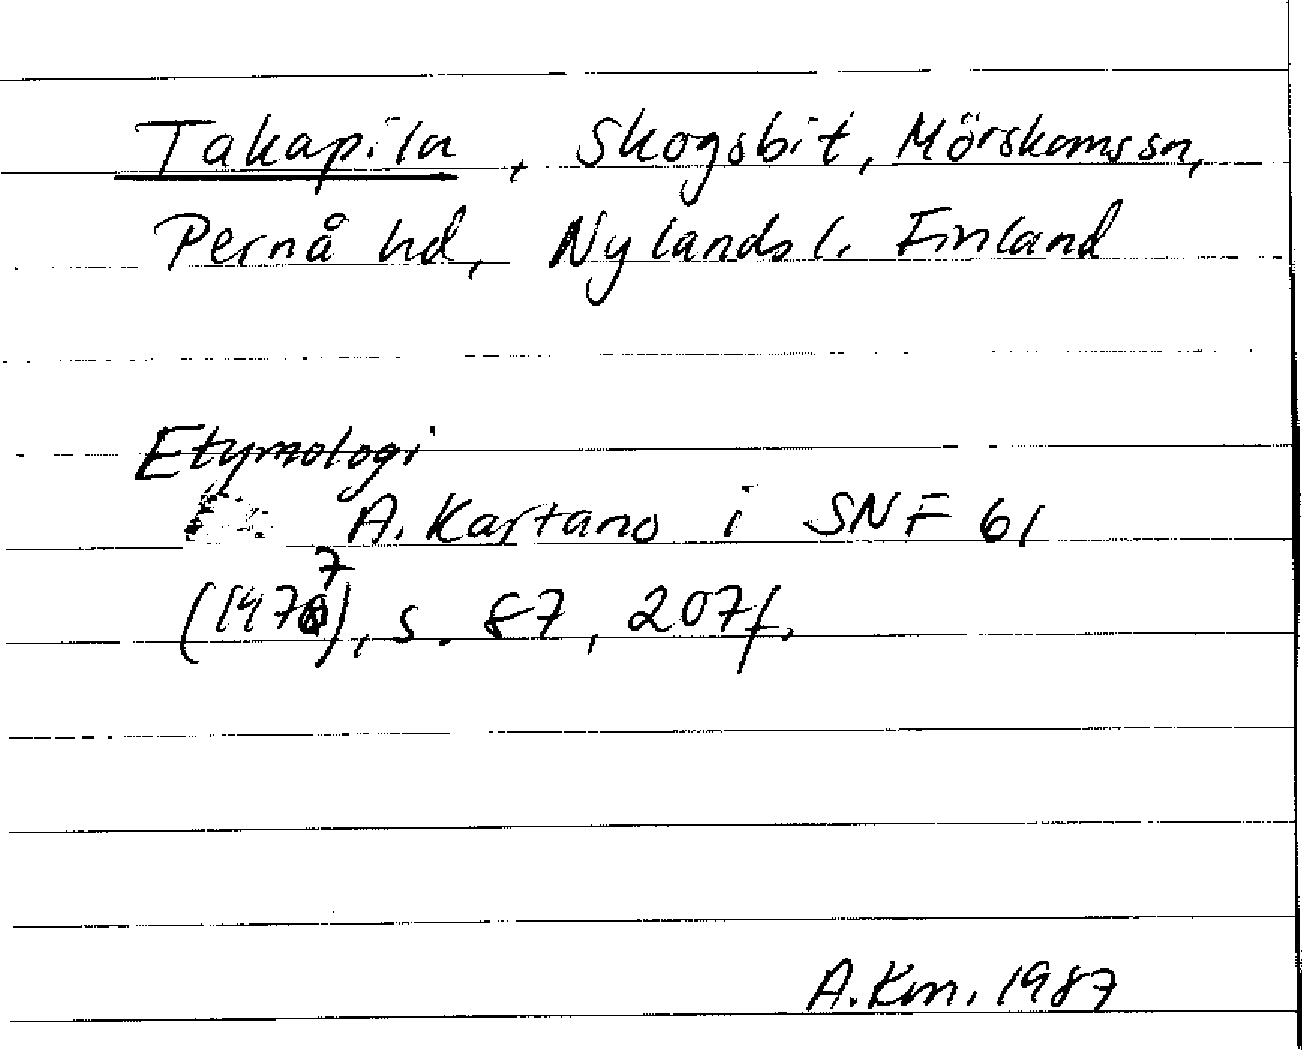 Takapila, Skogsbit, Mörskoms sn,
Pernå hd, Nylands l. Finland
Etymologi
A. Kartano i SNF 61
(1977), s. 87, 207f.
A.Km. 1987